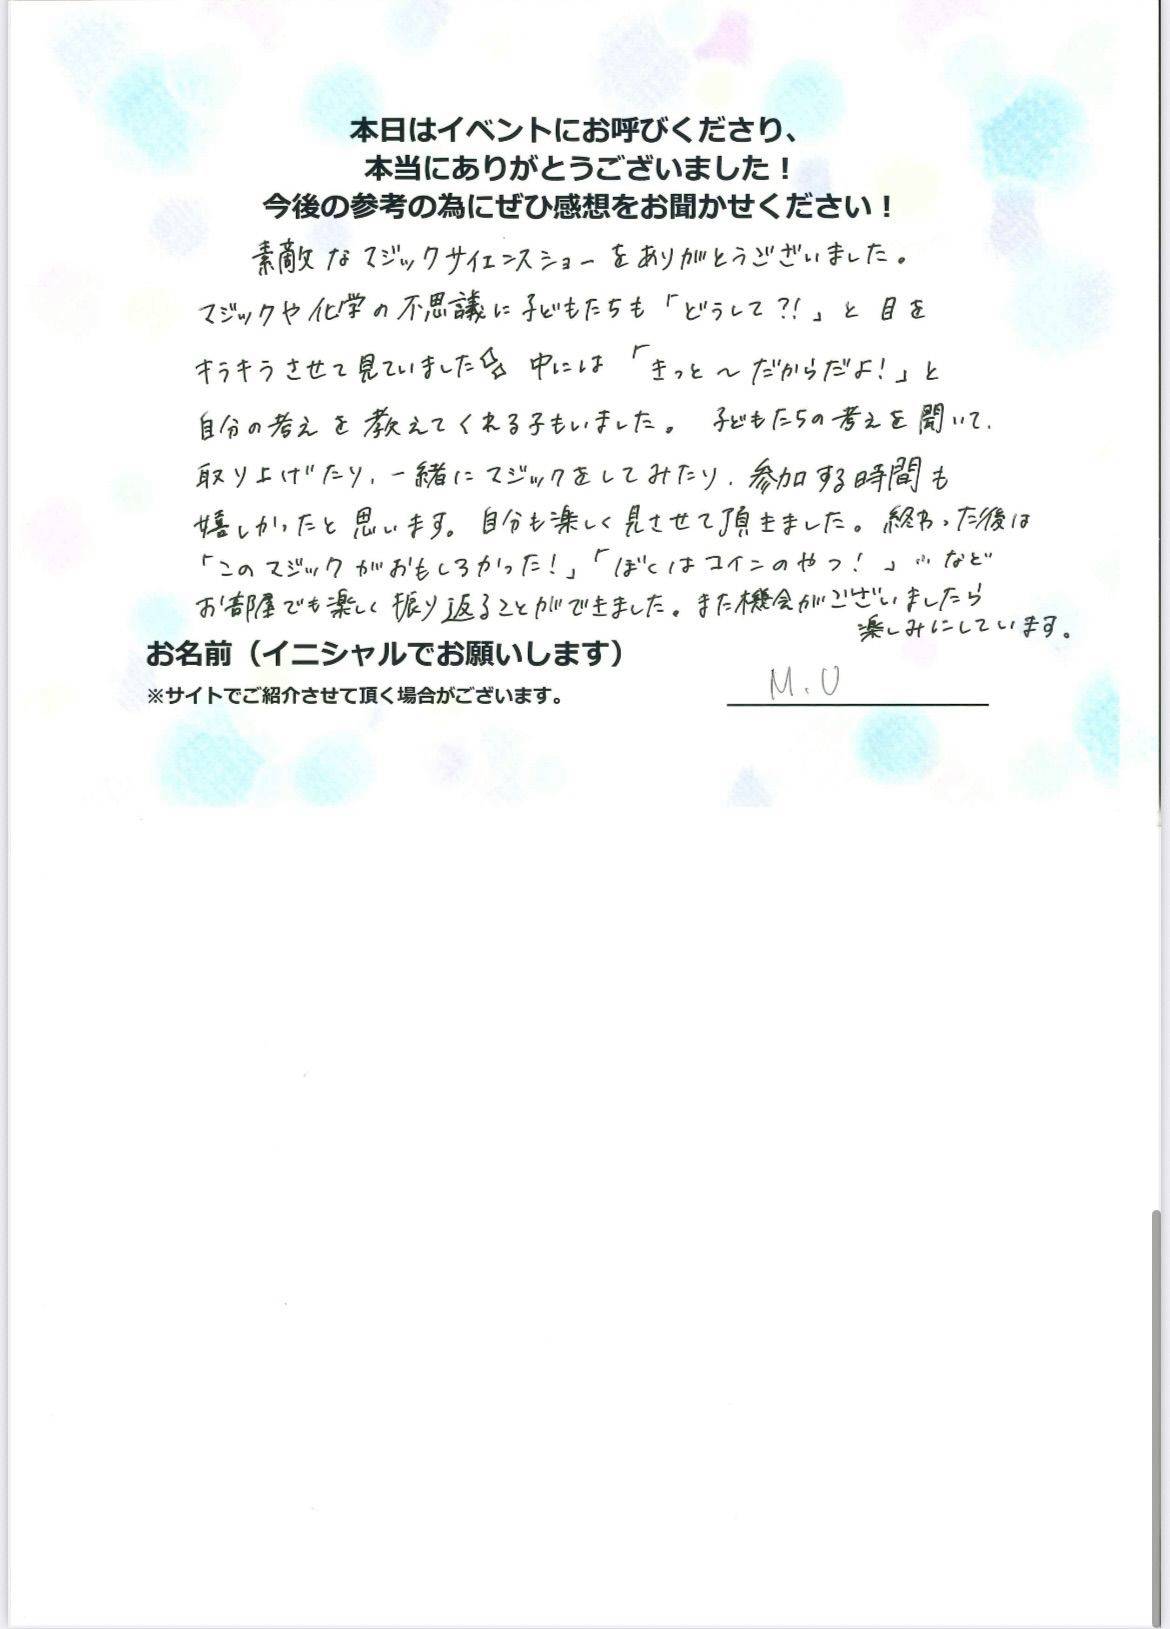 本日はイベントにお呼びくださり、
本当にありがとうございました！
今後の参考の為にぜひ感想をお聞かせください！
素敵なマジックサイエンスショーをありがとうございました。
マジックや化学の不思議に子どもたちも「どうして?!」と目を
キラキラさせて見ていました☆ 中には「きっと〜だからだよ!」と
自分の考えを教えてくれる子もいました。子どもたちの考えを聞いて、
取り上げたり、一緒にマジックをしてみたり、参加する時間も
嬉しかったと思います。自分も楽しく見させて頂きました。終わった後は
「このマジックがおもしろかった!」「ぼくはコインのやつ!」…など
お部屋でも楽しく振り返ることができました。また機会がございましたら
楽しみにしています。
お名前（イニシャルでお願いします）
※サイトでご紹介させて頂く場合がございます。
M.U